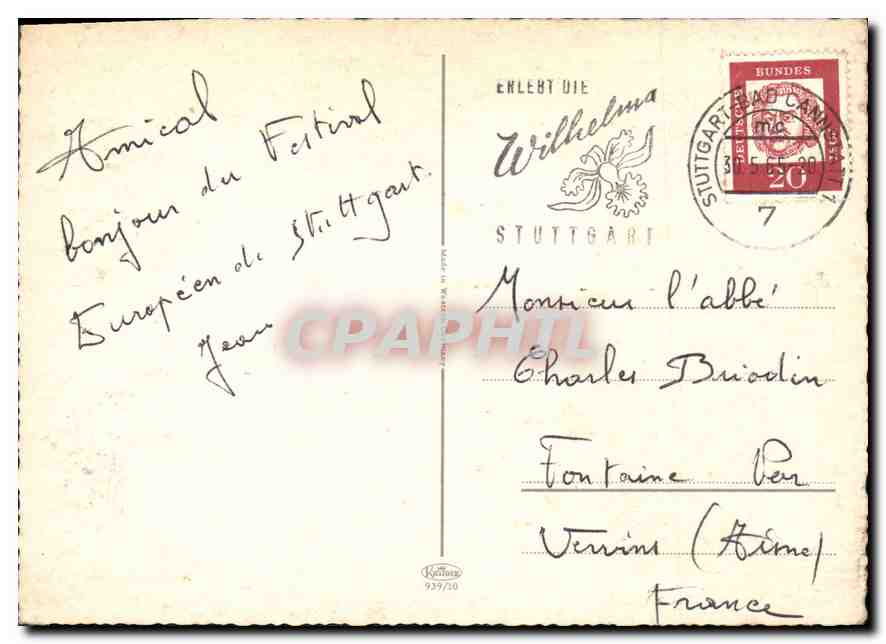 Amical
bonjour du Festival
Européen de Stuttgart.
Jean
Made in Western Germany
Krüger
939/10
ERLEBT DIE
Wilhelma
STUTTGART
DEUTSCHE BUNDESPOST
20
STUTTGART-BAD CANNSTATT 1
mc
30.5.65-20
7
Monsieur l'abbé
Charles Briodin
Fontaine Par
Vervins (Aisne)
France
CPAPHIL